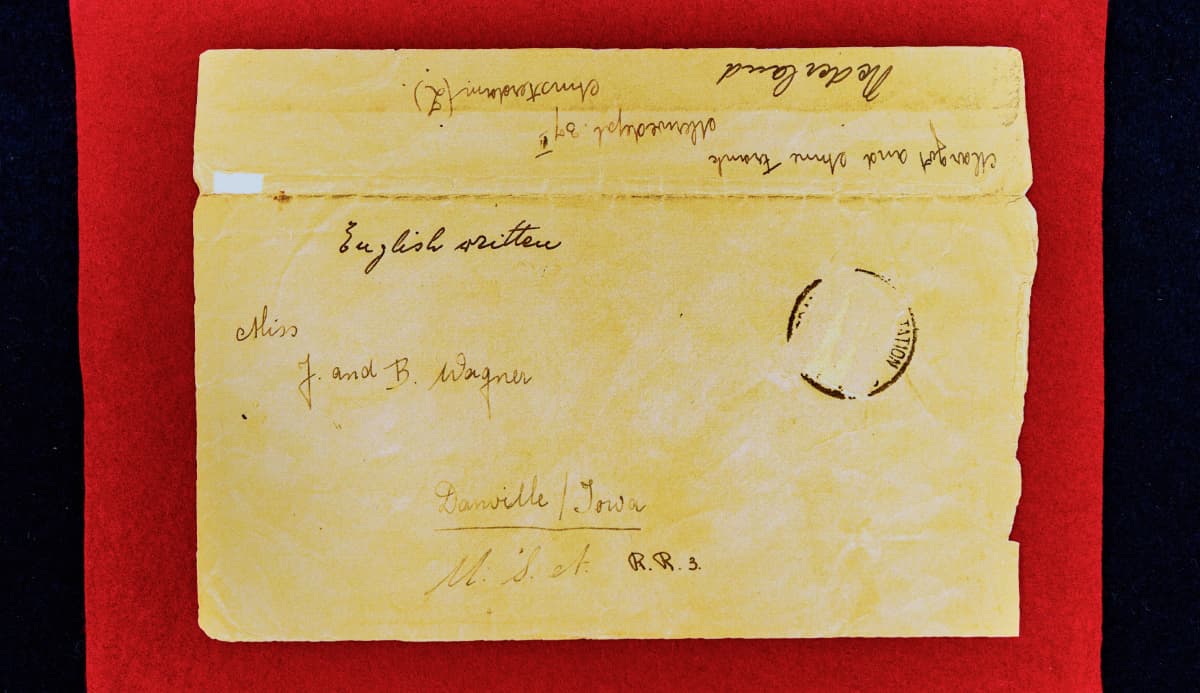 Margot and Anne Frank
Merwedepl. 37 II
Amsterdam (Z).
Nederland
English written
Miss
J. and B. Wagner
Danville / Iowa
U. S. A. R. R. 3.
TATION